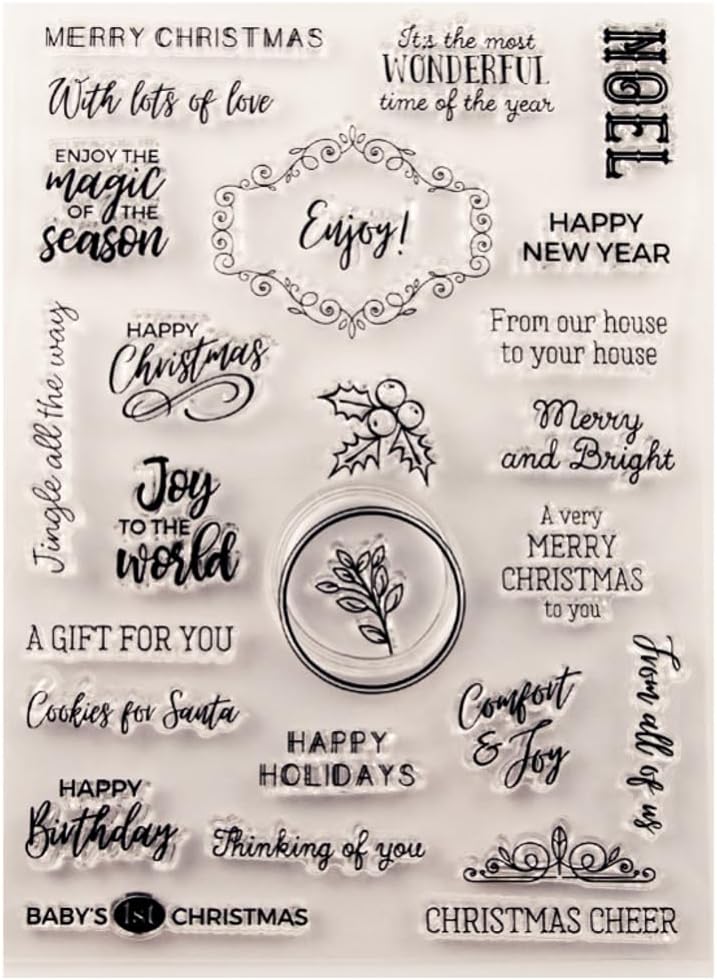 MERRY CHRISTMAS
It's the most
WONDERFUL
time of the year
NOEL
With lots of love
ENJOY THE
magic
OF THE
season
Enjoy!
HAPPY
NEW YEAR
Jingle all the way
HAPPY
Christmas
From our house
to your house
Merry
and Bright
Joy
TO THE
world
A very
MERRY
CHRISTMAS
to you
A GIFT FOR YOU
Cookies for Santa
HAPPY
HOLIDAYS
Comfort
& Joy
From all of us
HAPPY
Birthday
Thinking of you
BABY'S 1st CHRISTMAS
CHRISTMAS CHEER